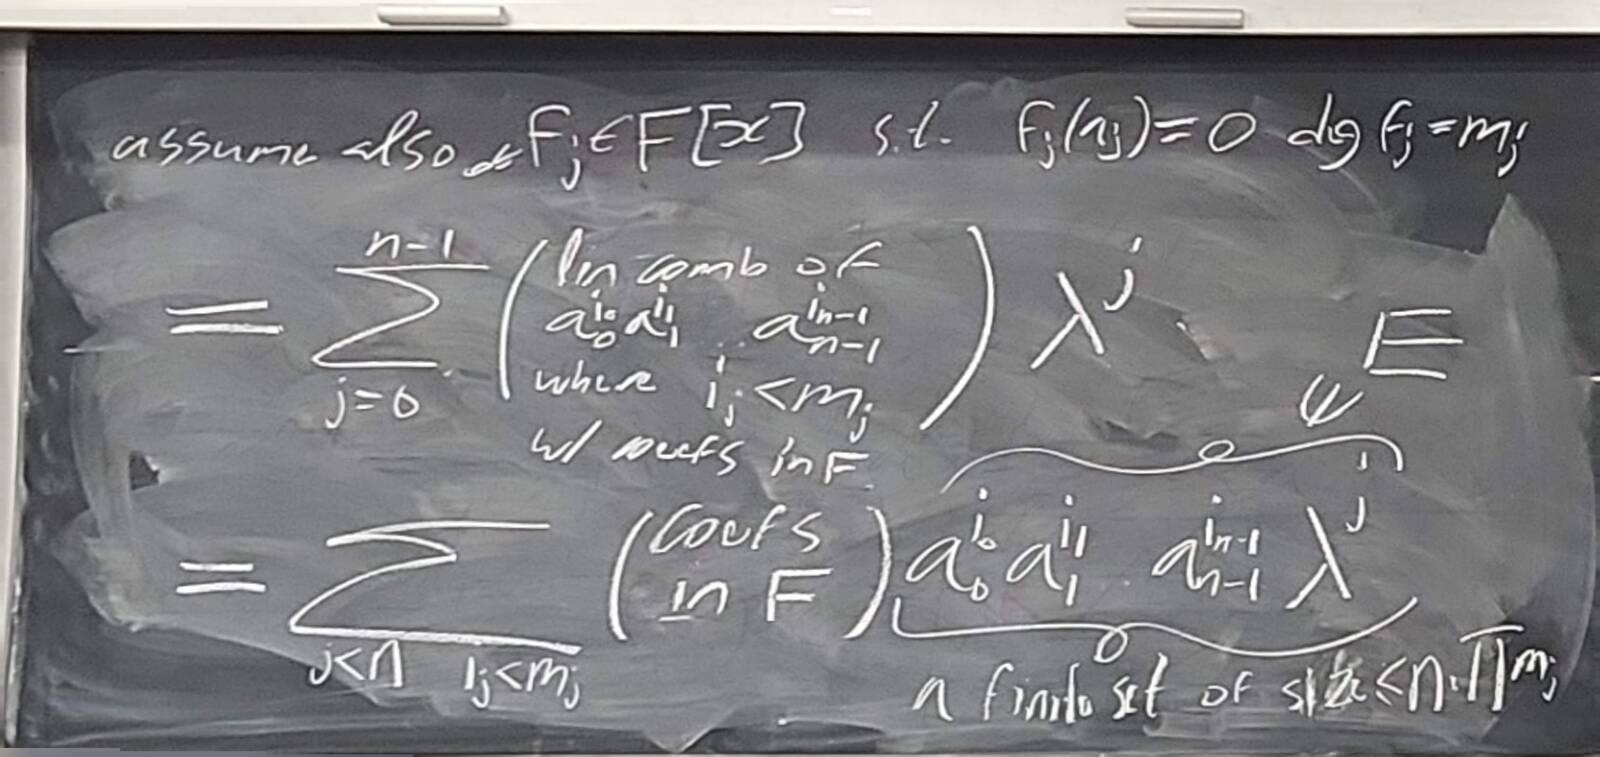 assume also f_j ∈ F[x] s.t. f_j(a_j) = 0 deg f_j = m_j
= \sum_{j=0}^{n-1} ( lin comb of a_0^{i_0} a_1^{i_1} .. a_{n-1}^{i_{n-1}} where i_j < m_j w/ coefs in F ) λ^j E
= \sum_{j<n i_j<m_j} ( coefs in F ) a_0^{i_0} a_1^{i_1} . a_{n-1}^{i_{n-1}} λ^j
a finite set of size < n · ∏ m_j